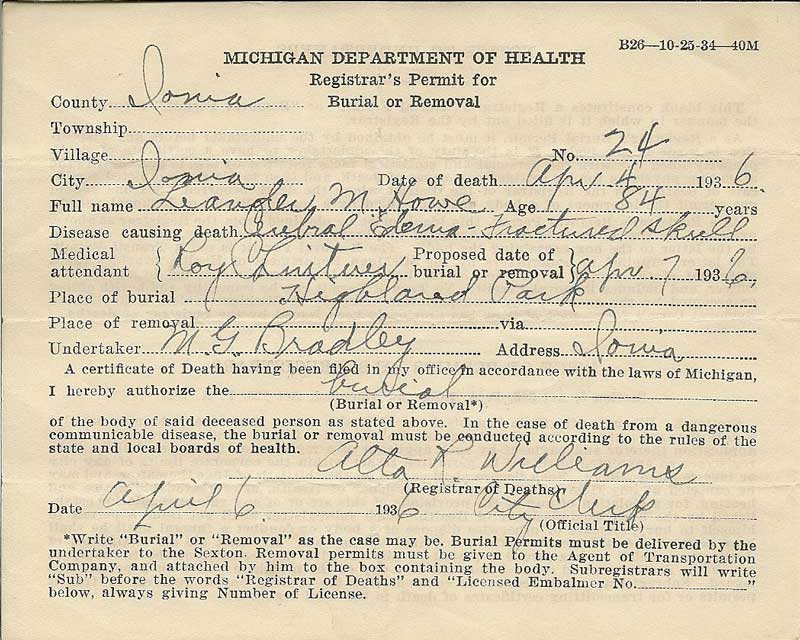 B26—10-25-34—40M
MICHIGAN DEPARTMENT OF HEALTH
Registrar's Permit for
County Ionia Burial or Removal
Township
Village No. 24
City Ionia Date of death Apr 4 1936.
Full name Leander M. Howe Age 84 years
Disease causing death Cerebral Edema - Fractured Skull
Medical Proposed date of
attendant Roy burial or removal Apr 7 1936,
Place of burial Highland Park
Place of removal via
Undertaker M. G. Bradley Address Ionia
A certificate of Death having been filed in my office in accordance with the laws of Michigan,
I hereby authorize the burial
(Burial or Removal*)
of the body of said deceased person as stated above. In the case of death from a dangerous
communicable disease, the burial or removal must be conducted according to the rules of the
state and local boards of health.
Alta R. Williams
(Registrar of Deaths)
Date April 6 1936 City Clerk
(Official Title)
*Write "Burial" or "Removal" as the case may be. Burial Permits must be delivered by the
undertaker to the Sexton. Removal permits must be given to the Agent of Transportation
Company, and attached by him to the box containing the body. Subregistrars will write
"Sub" before the words "Registrar of Deaths" and "Licensed Embalmer No. "
below, always giving Number of License.